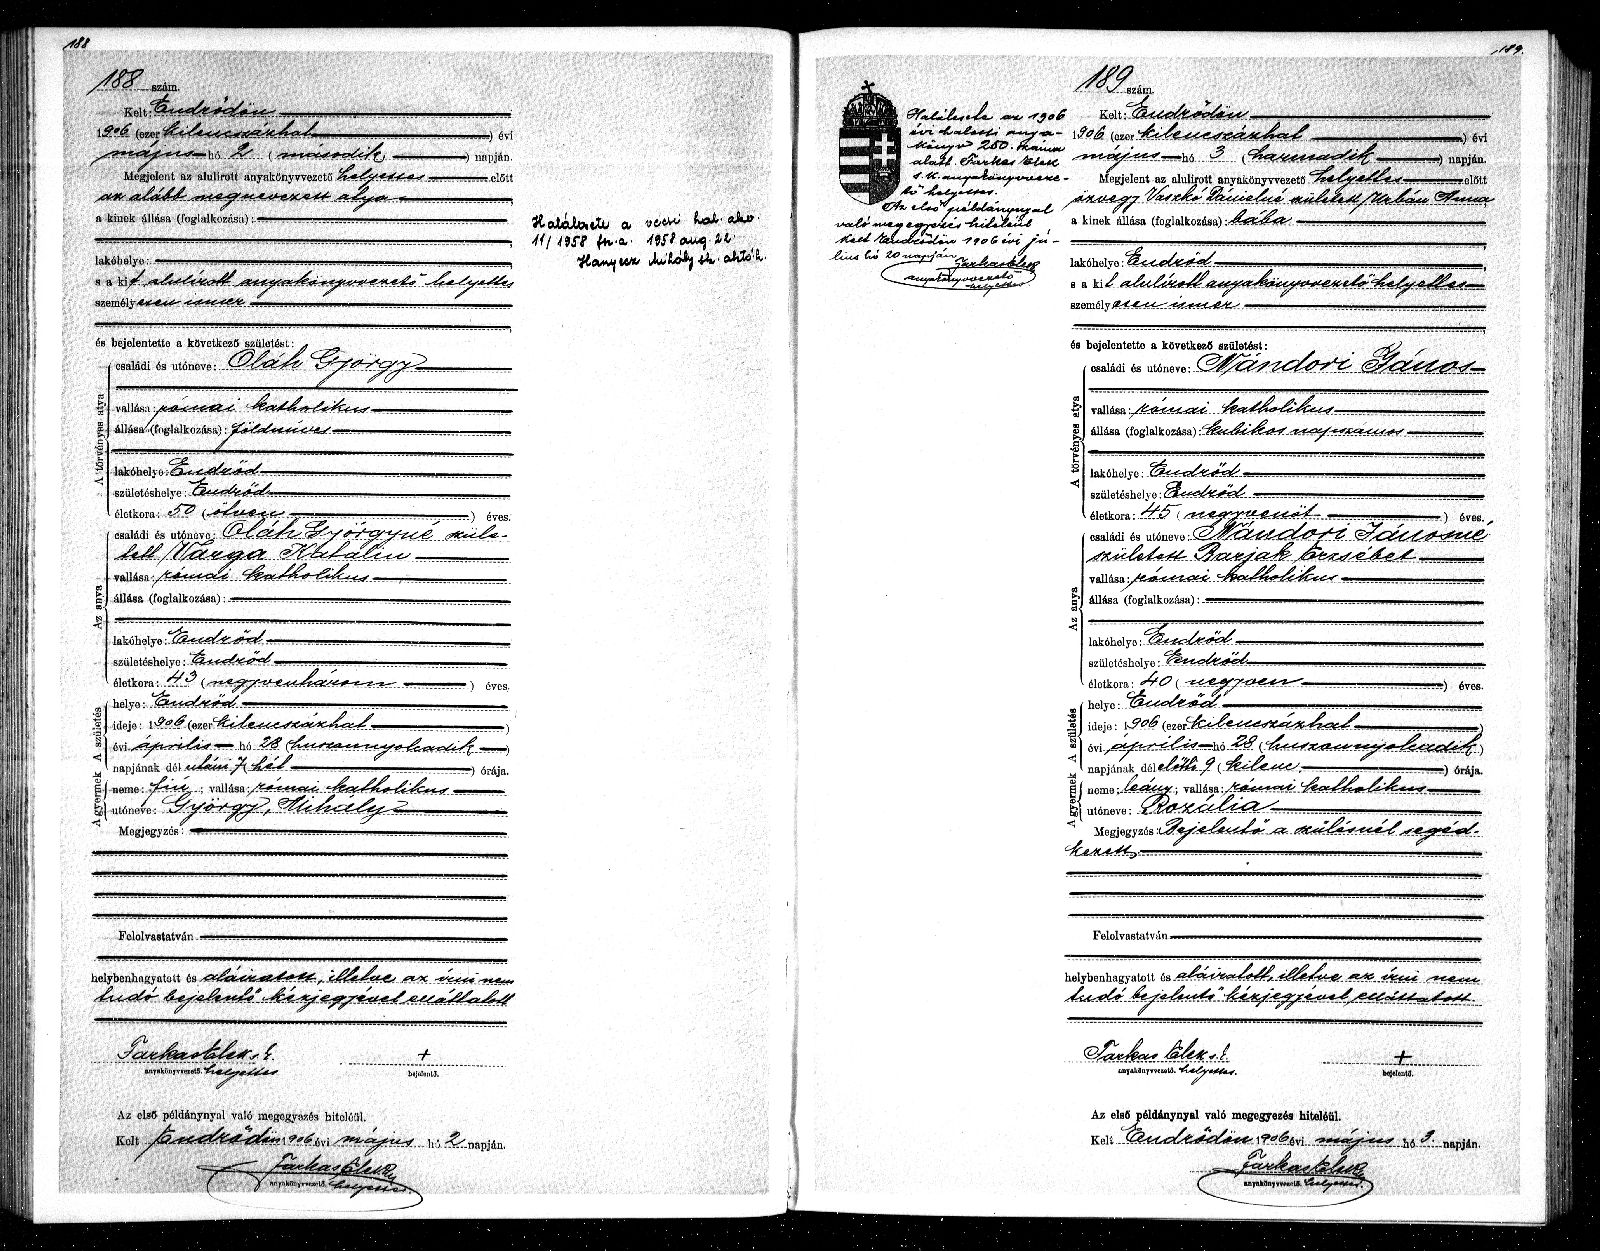 188
188 szám.
Kelt: Endrődön
1906 (ezer kilenczszázhat) évi
május hó 2 (második) napján.
Megjelent az alulirott anyakönyvvezető helyettes előtt
az alább megnevezett atya
a kinek állása (foglalkozása):
lakóhelye:
s a kit alulirott anyakönyvvezető helyettes
személyesen ismer
és bejelentette a következő születést:
A törvényes atya
családi és utóneve: Oláh György
vallása: római katholikus
állása (foglalkozása): földmüves
lakóhelye: Endrőd
születéshelye: Endrőd
életkora: 50 (ötven) éves.
Az anya
családi és utóneve: Oláh Györgyné szüle-
tett Varga Katalin
vallása: római katholikus
állása (foglalkozása):
lakóhelye: Endrőd
születéshelye: Endrőd
életkora: 43 (negyvenhárom) éves.
A születés
helye: Endrőd
ideje: 1906 (ezer kilenczszázhat)
évi április hó 28 (huszonnyolczadik)
napjának dél utáni 7 (hét) órája.
A gyermek
neme: fiú; vallása: római katholikus
utóneve: György, Mihály
Megjegyzés:
Felolvastatván
helybenhagyatott és aláiratott, illetve az irni nem
tudó bejelentő kézjegyével elláttatott
Farkas Elek s.k. +
anyakönyvvezető. helyettes bejelentő.
Az első példánynyal való megegyezés hiteléül.
Kelt Endrődön 1906 évi május hó 2 napján.
Farkas Elek
anyakönyvvezető. helyettes.
Halálesete a vecsi hal. akv.
11/1958 fsz. a. 1958 aug. 22.
Hanyecz Mihály sk. akv. h.
189.
Halálesete az 1906
évi halotti anya-
könyv 250. száma
alatt. Farkas Elek
s.k. anyakönyvveze-
tő helyettes.
Az első példánynyal
való megegyezés hiteléül
kelt Endrődön 1906 évi jú-
lius hó 20 napján
Farkas Elek
anyakönyvvezető
helyettes
189 szám.
Kelt: Endrődön
1906 (ezer kilenczszázhat) évi
május hó 3 (harmadik) napján.
Megjelent az alulirott anyakönyvvezető helyettes előtt
özvegy Vaszkó Dánielné született Urbán Anna
a kinek állása (foglalkozása): bába
lakóhelye: Endrőd
s a kit alulirott anyakönyvvezető helyettes
személyesen ismer
és bejelentette a következő születést:
A törvényes atya
családi és utóneve: Nándori János
vallása: római katholikus
állása (foglalkozása): kubikos napszámos
lakóhelye: Endrőd
születéshelye: Endrőd
életkora: 45 (negyvenöt) éves.
Az anya
családi és utóneve: Nándori Jánosné
született Barjak Erzsébet
vallása: római katholikus
állása (foglalkozása):
lakóhelye: Endrőd
születéshelye: Endrőd
életkora: 40 (negyven) éves.
A születés
helye: Endrőd
ideje: 1906 (ezer kilenczszázhat)
évi április hó 28 (huszonnyolczadik)
napjának dél előtti 9 (kilenc) órája.
A gyermek
neme: leány; vallása: római katholikus
utóneve: Rozália
Megjegyzés: Bejelentő a szülésnél segéd-
kezett
Felolvastatván
helybenhagyatott és aláiratott, illetve az irni nem
tudó bejelentő kézjegyével elláttatott
Farkas Elek s.k. +
anyakönyvvezető. helyettes. bejelentő.
Az első példánynyal való megegyezés hiteléül.
Kelt Endrődön 1906 évi május hó 3. napján.
Farkas Elek
anyakönyvvezető. helyettes.